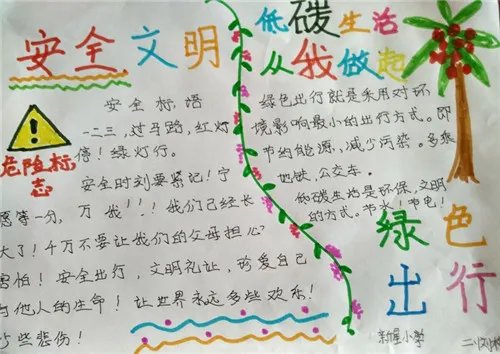 安全文明
安全标语
一二三，过马路，红灯
停！绿灯行。
危险标
志
安全时刻要紧记！宁
愿等一分，万
！！！我们已经长
大了！千万不要让我们的父母担心
害怕！安全出行，文明礼让，珍爱自己
与他人的生命！让世界永远多些欢乐！
少些悲伤！
低碳生活
从我做起
绿色出行就是采用对环
境影响最小的出行方式。即
节约能源，减少污染。多乘
地铁，公交车。
低碳生活是环保，文明
的方式。节水！节电！
绿色
出行
新星小学